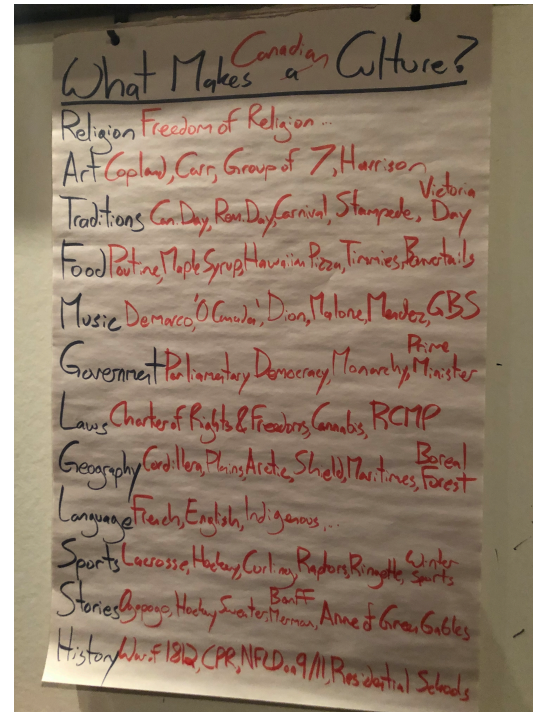 What Makes a Canadian Culture?
Religion Freedom of Religion...
Art Copland, Carr, Group of 7, Harrison
Traditions Can. Day, Rem. Day, Carnival, Stampede, Victoria Day
Food Poutine, Maple Syrup, Hawaiian Pizza, Timmies, Beavertails
Music Demarco, 'O Canada', Dion, Malone, Mendez, GBS
Government Parliamentary Democracy, Monarchy, Prime Minister
Laws Charter of Rights & Freedoms, Cannabis, RCMP
Geography Cordillera, Plains, Arctic, Shield, Maritimes, Boreal Forest
Language French, English, Indigenous,...
Sports Lacrosse, Hockey, Curling, Raptors, Ringette, Winter Sports
Stories Ogopogo, Hockey Sweater, Banff Merman, Anne of Green Gables
History War of 1812, CPR, NFLD on 9/11, Residential Schools